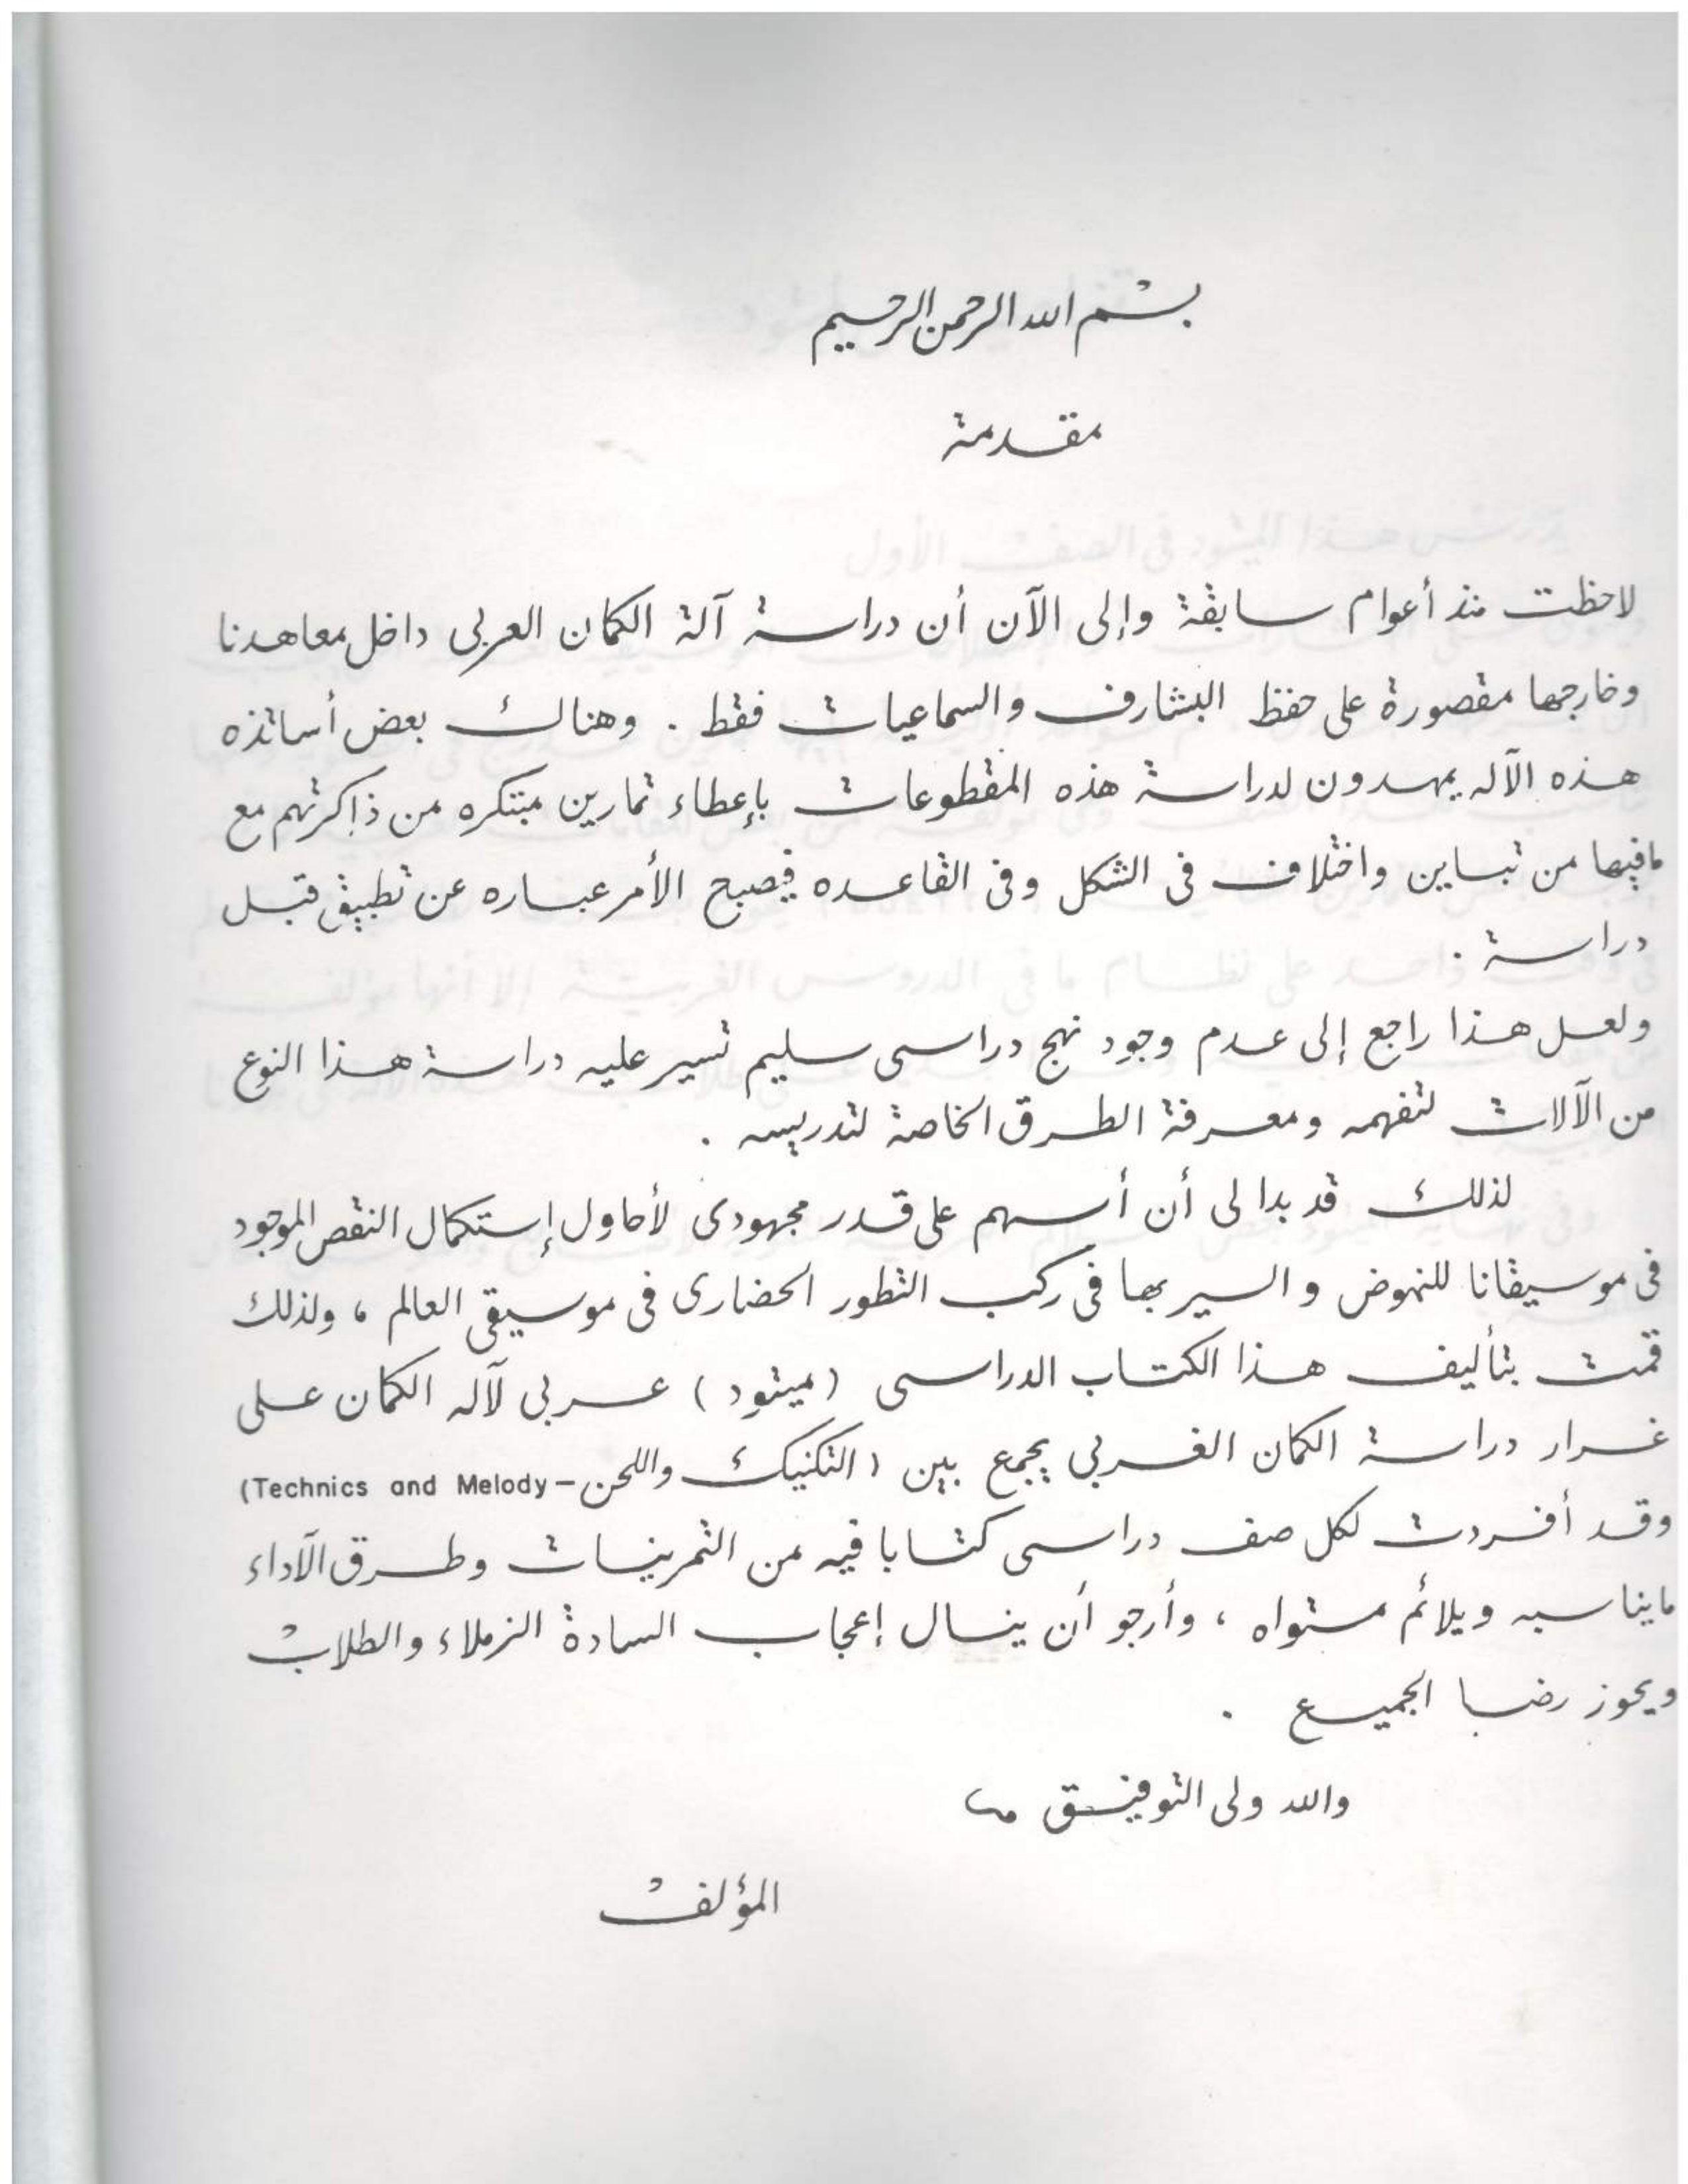 بسم الله الرحمن الرحيم
مقدمة
لاحظت منذ أعوام سابقة وإلى الآن أن دراسة آلة الكمان العربى داخل معاهدنا
وخارجها مقصورة على حفظ البشارف والسماعيات فقط . وهناك بعض أساتذه
هذه الآله يمهدون لدراسة هذه المقطوعات بإعطاء تمارين مبتكره من ذاكرتهم مع
مافيها من تباين واختلاف فى الشكل وفى القاعده فيصبح الأمر عباره عن تطبيق قبل
دراسة .
ولعل هذا راجع إلى عدم وجود نهج دراسى سليم تسير عليه دراسة هذا النوع
من الآلات لتفهمه ومعرفة الطرق الخاصة لتدريسه .
لذلك قد بدا لى أن أسهم على قدر مجهودى لأحاول إستكمال النقص الموجود
فى موسيقانا للنهوض والسير بها فى ركب التطور الحضارى فى موسيقى العالم ، ولذلك
قمت بتأليف هذا الكتاب الدراسى (ميتود) عربى لآله الكمان على
غرار دراسة الكمان الغربى يجمع بين (التكنيك واللحن - Technics and Melody)
وقد أفردت لكل صف دراسى كتابا فيه من التمرينات وطرق الآداء
مايناسبه ويلائم مستواه ، وأرجو أن ينال إعجاب السادة الزملاء والطلاب
ويحوز رضا الجميع .
والله ولى التوفيق
المؤلف